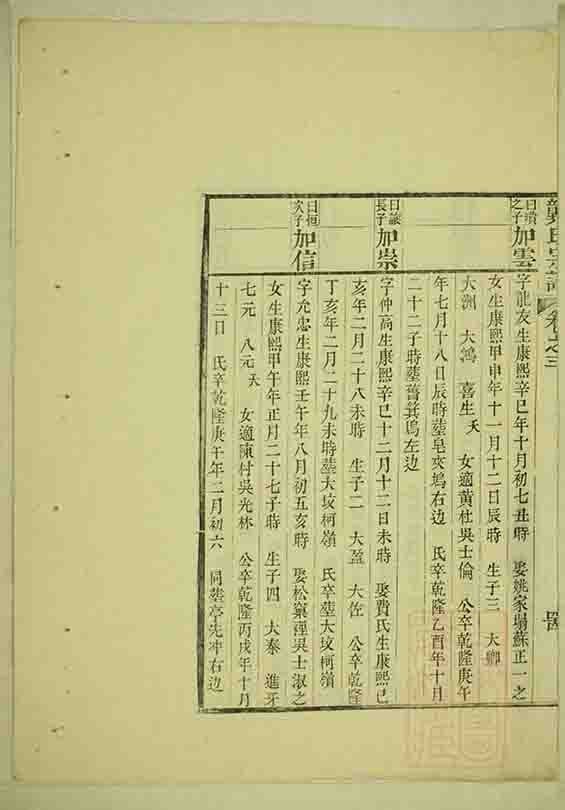 氏宗譜 卷之三
曰瓚之子 加雲
字龍友生康熙辛巳年十月初七丑時 娶姚家塌蘇正一之
女生康熙甲申年十一月十二日辰時 生子三 大卿
大洲 大鴻 喜生夭 女適黃杜吳士倫 公卒乾隆庚午
年七月十八日辰時塟皂夾塢右边 氏卒乾隆乙酉年十月
二十二子時塟箕塢左边
長子 加崇
字仲高生康熙辛巳十二月十二日未時 娶費氏生康熙己
亥年二月二十八未時 生子二 大盈 大佐 公卒乾隆
丁亥年二月二十九未時塟大坟柯嶺 氏卒塟大坟柯嶺
曰恒次子 加信
字允忠生康熙壬午年八月初五亥時 娶松窠徑吳士淑之
女生康熙甲午年正月二十七子時 生子四 大泰 進牙
七元 八元夭 女適東村吳光林 公卒乾隆丙戌年十月
十三日 氏卒乾隆庚午年二月初六 同塟亭先冲右边